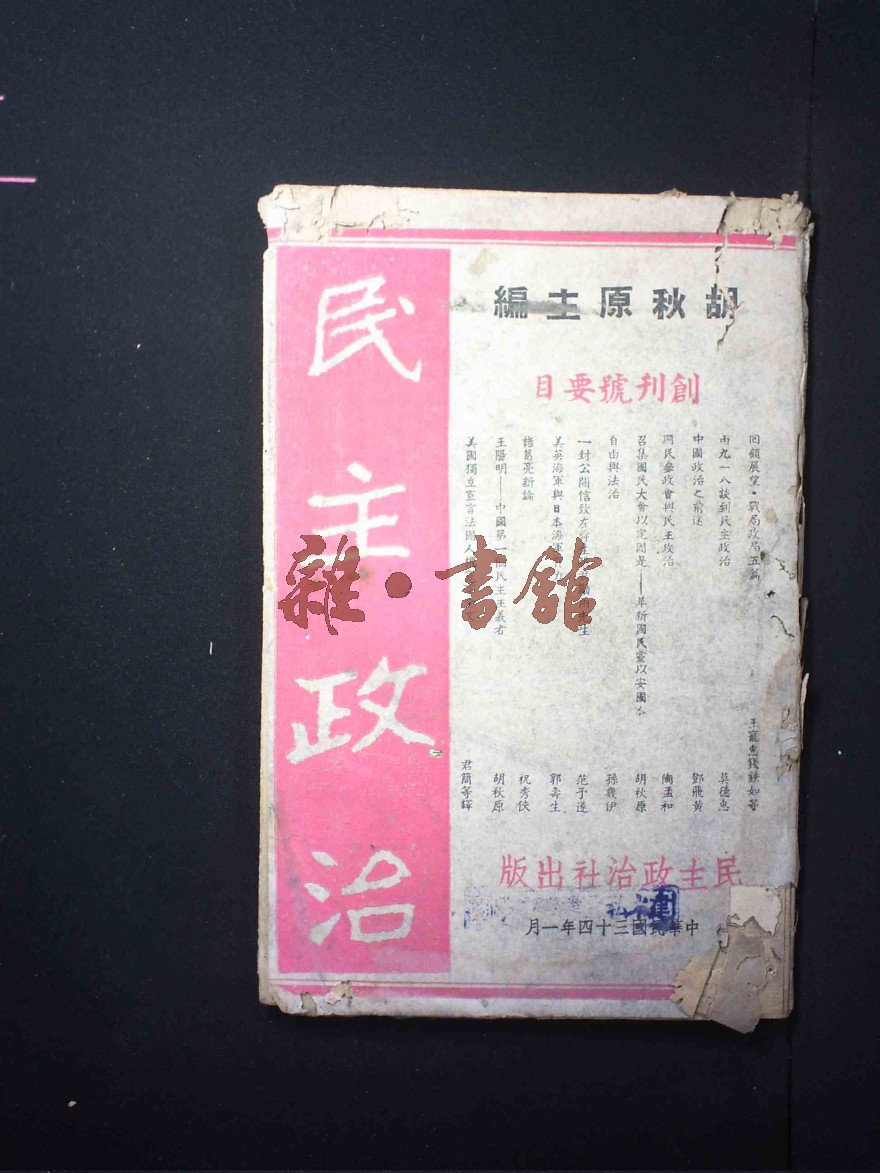 民主政治
胡秋原主編
創刊號要目
回顧展望·戰局政局五篇 王寵惠錢鉄如等
由九一八談到民主政治 莫德惠
中國政治之前途 鄧飛黃
國民參政會與民主政治 陶孟和
召集國民大會以定國是——革新國民黨以安國本 胡秋原
自由與法治 孫幾伊
一封公開信致左 生 范予遂
美英海軍與日本海軍 郭壽生
諸葛亮新論 祝秀俠
王陽明——中國第一個民主主義者 胡秋原
美國獨立宣言法國人權 君簡等譯
民主政治社出版
中華民國三十四年一月
雜·書館